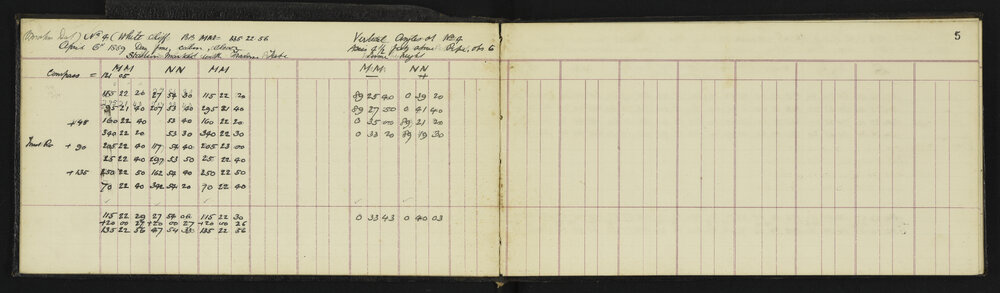 No 4 (White Cliff. MM 135 22 56 Vertical Angles at No 4 5
April 6th Day fine, calm, clear. 4½ feet above
Station marked with
MM NN MM MM NN
Compass = 121 05 — +
115 22 20 27 54 30 115 22 20 89 25 40 0 39 20
295 21 40 207 53 40 295 21 40 89 27 50 0 41 40
+45 160 22 40 53 40 160 22 20 0 35 00 89 21 20
340 22 20 53 30 340 22 30 0 33 20 89 19 30
+90 205 22 40 117 54 40 205 23 00
25 22 40 297 53 50 25 22 40
+135 250 22 50 162 54 40 250 22 50
70 22 40 342 54 20 70 22 40
115 22 29 27 54 06 115 22 30 0 33 43 0 40 03
+20 00 27 +20 00 27 +20 00 26
135 22 56 47 54 33 135 22 56